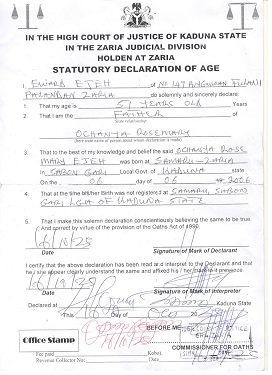 IN THE HIGH COURT OF JUSTICE OF KADUNA STATE
IN THE ZARIA JUDICIAL DIVISION
HOLDEN AT ZARIA
STATUTORY DECLARATION OF AGE
1. EWARD EJEH of No 147 ANGUWAN FULANI
PALANDAN ZARIA do solemnly and sincerely declare:
1. That my age is 57 YEARS OLD Years
2. That I am the FATHER of
State relationship
OCHANYA ROSEMARY
3. That to the best of my knowledge and belief the said OCHANYA ROSE
MARY EJEH was born at SAMARU-ZARIA
In SABON GARI Local Govt. of KADUNA state
On the 06 day of 06 2006
4. That at the time his/her Birth was not registered at SAMARU, SABON
GARI LGA OF KADUNA STATE
5. That I make this solemn declaration conscientiously believing the same to be true
And correct by virtue of the provision of the Oaths Act of 1990.
Date Signature of Mark of Declarant
I certify that the above declaration has been read and interpret to the Declarant and that
he/she appear clearly understand the same and affixed his / her in presence.
Date Signature of Mark of Interpreter
Declared at Kaduna State
This day of 20
BEFORE ME
Office Stamp
COMMISSIONER FOR OATHS
Fee paid Kobo)
Revenue Collector No: Date